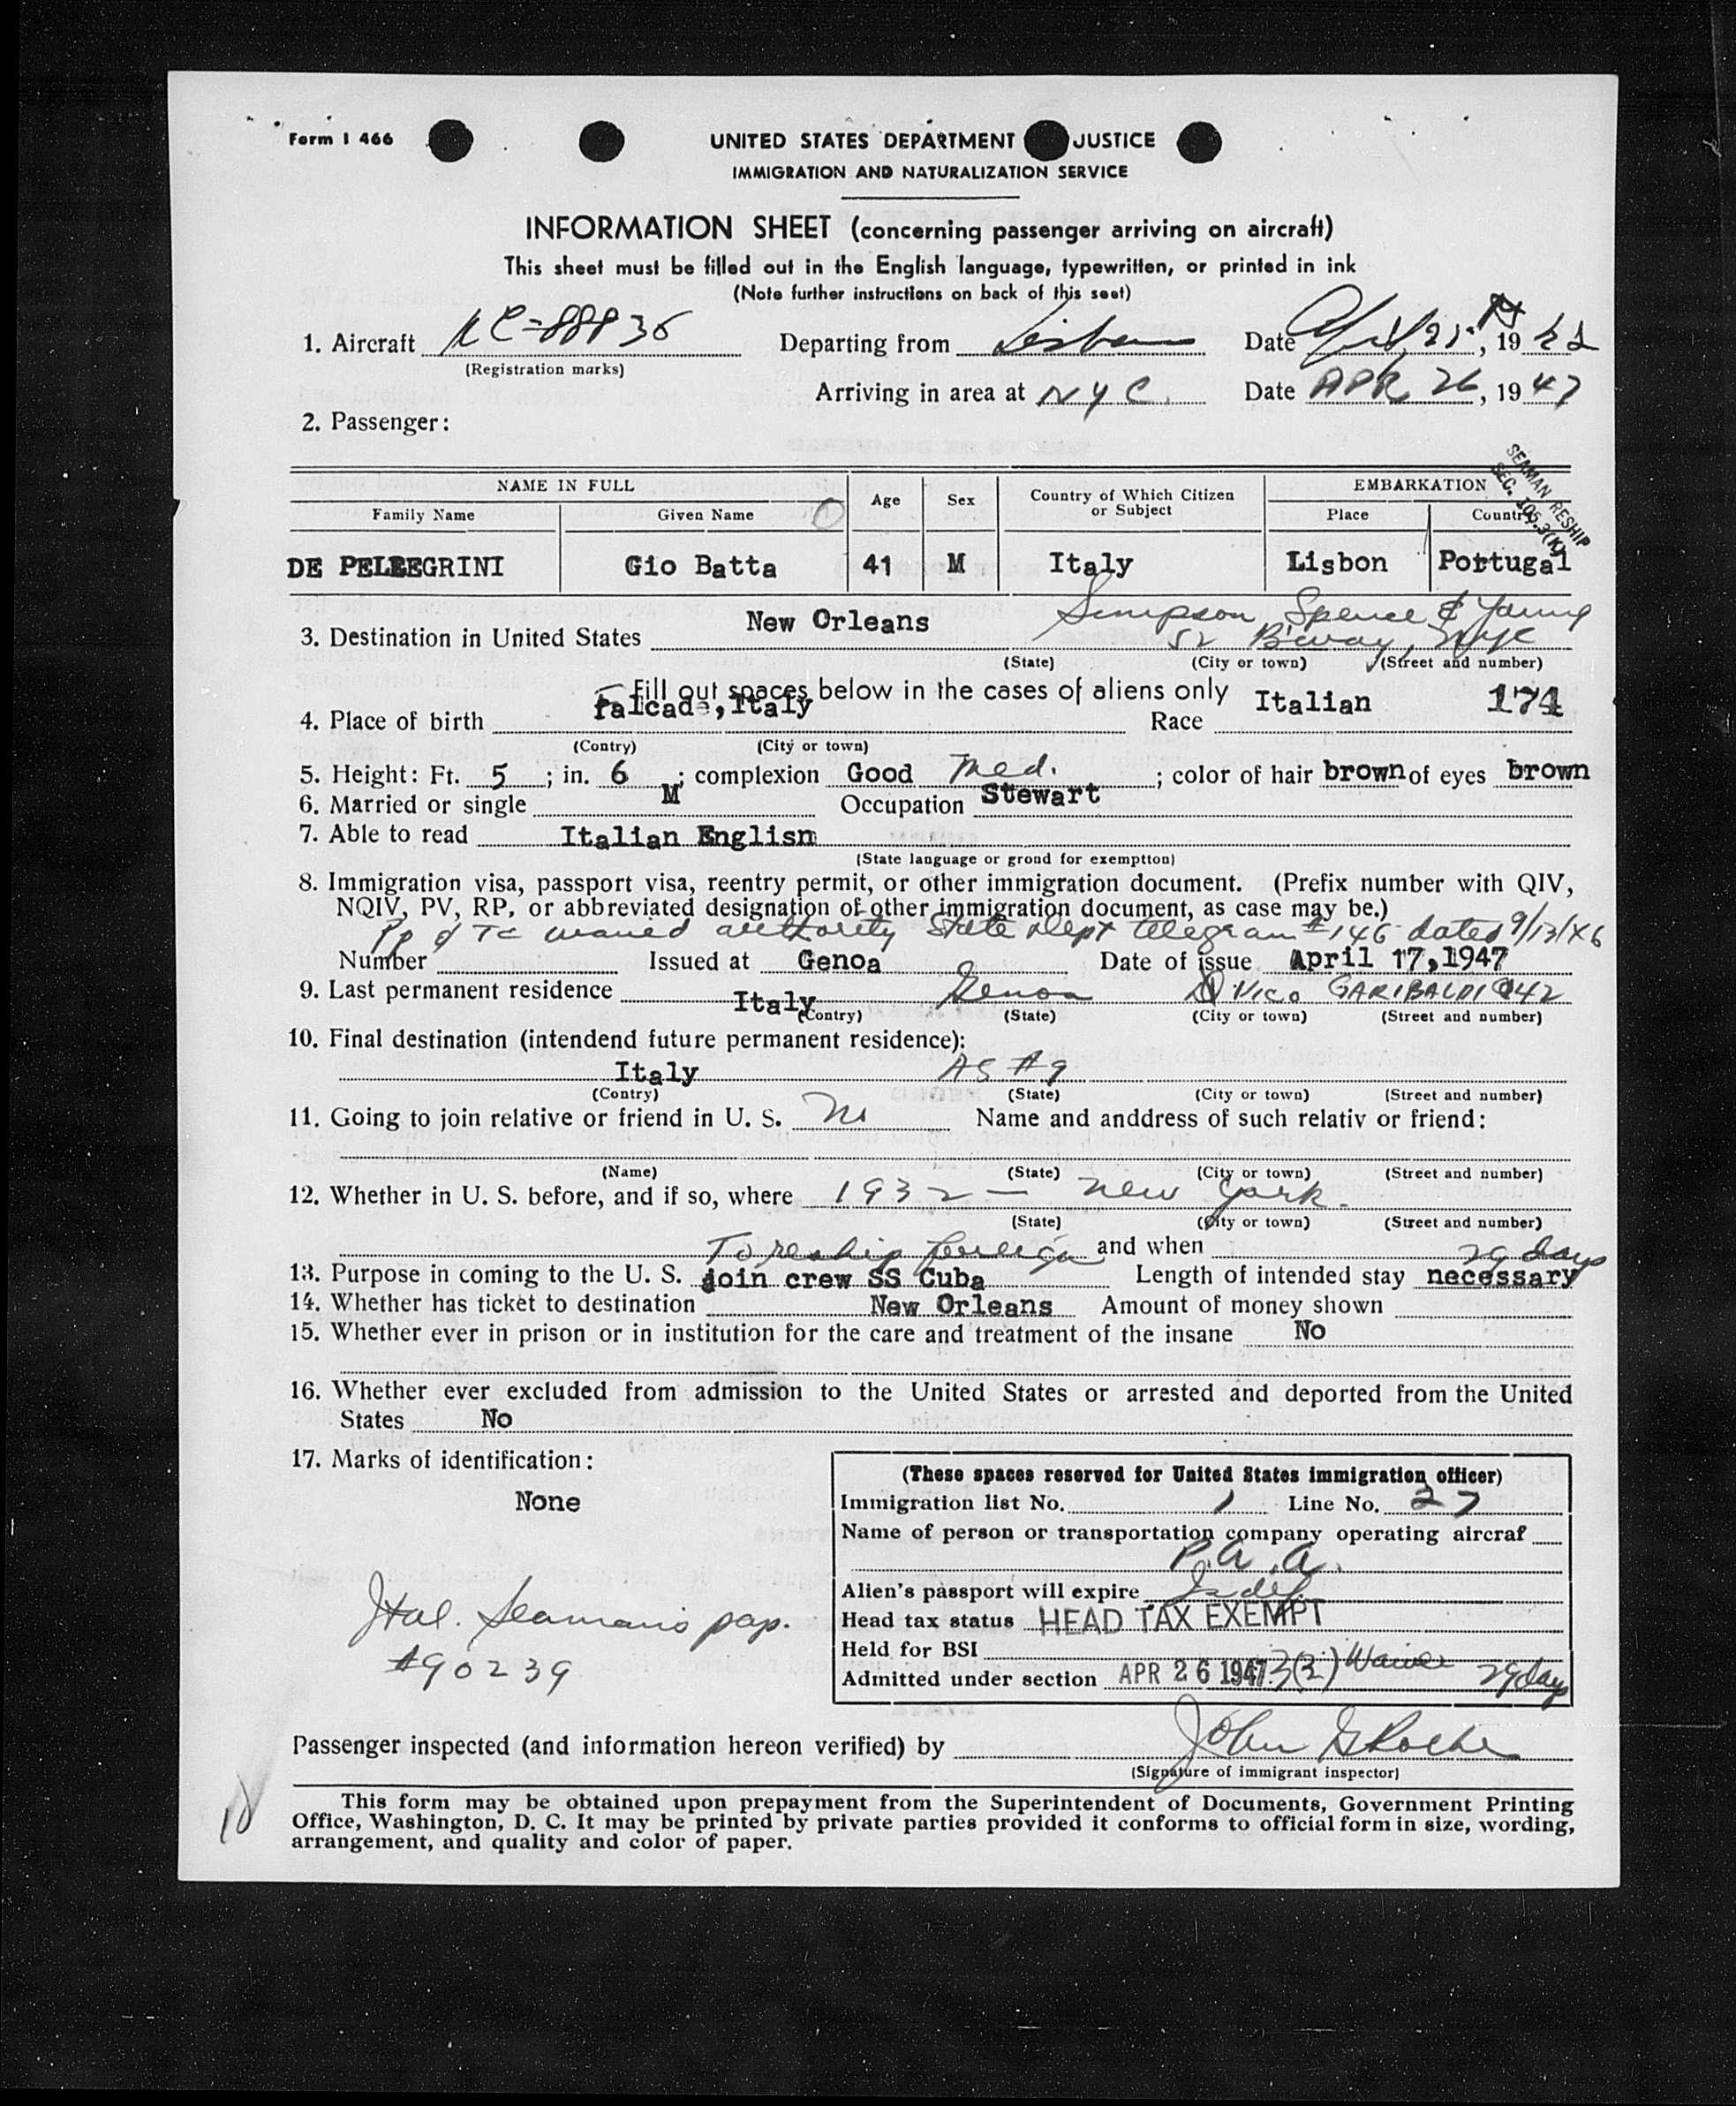 Form I 466
UNITED STATES DEPARTMENT JUSTICE
IMMIGRATION AND NATURALIZATION SERVICE
INFORMATION SHEET (concerning passenger arriving on aircraft)
This sheet must be filled out in the English language, typewritten, or printed in ink
(Note further instructions on back of this seet)
1. Aircraft NC-88836 Departing from Lisbon Date April 25, 19
(Registration marks)
Arriving in area at NYC. Date APR 26, 1947
2. Passenger:
SEAMAN RESHIP
SEC. 105.3(K)
NAME IN FULL Age Sex Country of Which Citizen or Subject EMBARKATION
Family Name Given Name Place Country
DE PELLEGRINI Gio Batta 41 M Italy Lisbon Portugal
Simpson, Spence & Young
3. Destination in United States New Orleans 52 B'way, NYC
(State) (City or town) (Street and number)
Fill out spaces below in the cases of aliens only
4. Place of birth Falcade, Italy Race Italian 174
(Contry) (City or town)
5. Height: Ft. 5; in. 6; complexion Good Med.; color of hair brown of eyes brown
6. Married or single M Occupation Stewart
7. Able to read Italian English
(State language or grond for exemptton)
8. Immigration visa, passport visa, reentry permit, or other immigration document. (Prefix number with QIV,
NQIV, PV, RP, or abbreviated designation of other immigration document, as case may be.)
Pp & Tc waived authority State Dept telegram #146 dated 9/13/46
Number Issued at Genoa Date of issue April 17,1947
9. Last permanent residence Italy Genoa Vico GARIBALDI 42
(Contry) (State) (City or town) (Street and number)
10. Final destination (intendend future permanent residence):
Italy AS #9
(Contry) (State) (City or town) (Street and number)
11. Going to join relative or friend in U. S. No Name and anddress of such relativ or friend:
(Name) (State) (City or town) (Street and number)
12. Whether in U. S. before, and if so, where 1932 — New York.
(State) (City or town) (Street and number)
To reship foreign and when 29 days
13. Purpose in coming to the U. S. join crew SS Cuba Length of intended stay necessary
14. Whether has ticket to destination New Orleans Amount of money shown
15. Whether ever in prison or in institution for the care and treatment of the insane No
16. Whether ever excluded from admission to the United States or arrested and deported from the United
States No
17. Marks of identification:
None
Ital. Seaman's pap.
#90239
(These spaces reserved for United States immigration officer)
Immigration list No. 1 Line No. 27
Name of person or transportation company operating aircraf
P.A.A.
Alien's passport will expire Indef.
Head tax status HEAD TAX EXEMPT
Held for BSI
Admitted under section APR 26 1947 3(2) Waiver 29 days
Passenger inspected (and information hereon verified) by John G Roche
(Signature of immigrant inspector)
This form may be obtained upon prepayment from the Superintendent of Documents, Government Printing
Office, Washington, D. C. It may be printed by private parties provided it conforms to official form in size, wording,
arrangement, and quality and color of paper.